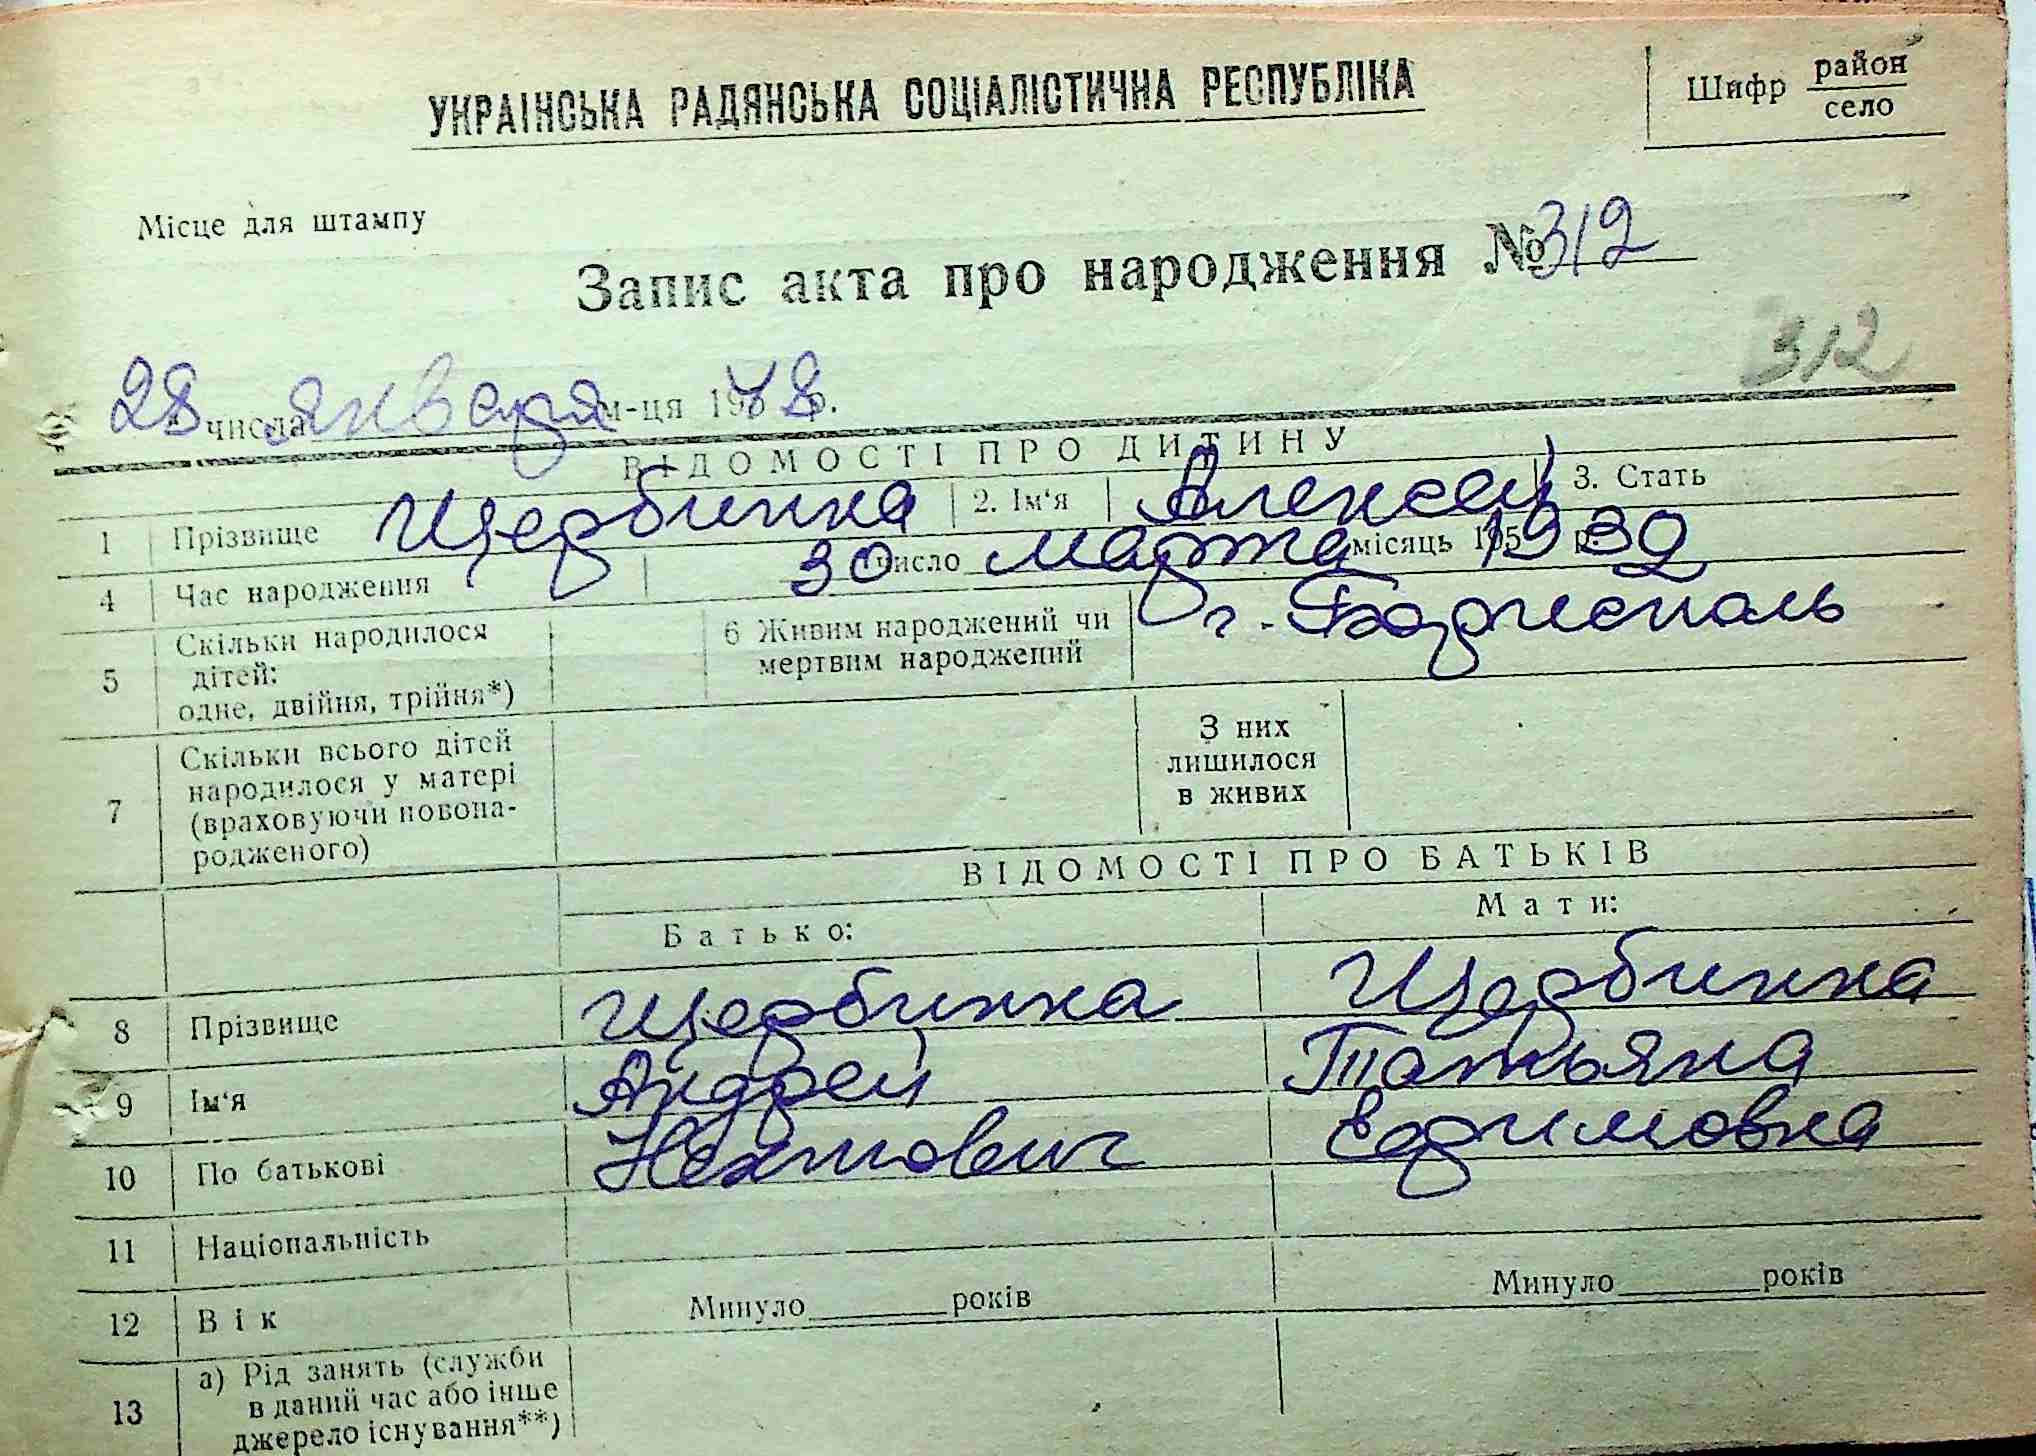 УКРАЇНСЬКА РАДЯНСЬКА СОЦІАЛІСТИЧНА РЕСПУБЛІКА
Шифр район
село
Місце для штампу
Запис акта про народження №312
312
28 числа января м-ця 1978 р.
ВІДОМОСТІ ПРО ДИТИНУ
1 Прізвище Щербинка 2. Ім'я Алексей 3. Стать
4 Час народження 30 число марта місяць 1930
5 Скільки народилося дітей: одне, двійня, трійня*) 6 Живим народжений чи мертвим народжений г. Бориспаль
7 Скільки всього дітей народилося у матері (враховуючи новона-родженого) З них лишилося в живих
ВІДОМОСТІ ПРО БАТЬКІВ
Батько: Мати:
8 Прізвище Щербинка Щербинка
9 Ім'я Андрей Татьяна
10 По батькові Ефимовна
11 Національність
12 Вік Минуло років Минуло років
13 а) Рід занять (служби
в даний час або інше
джерело існування**)